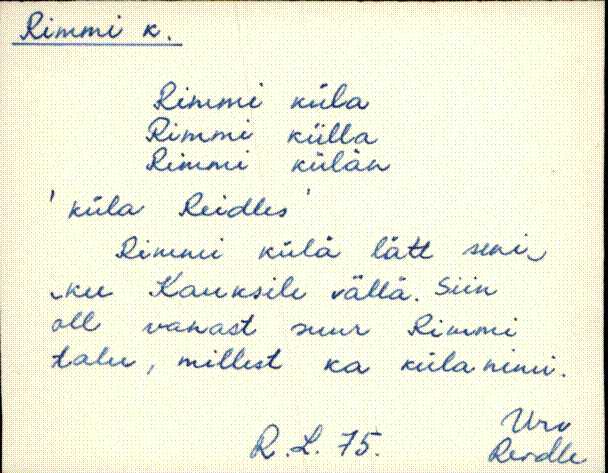 Rimmi k.
Rimmi küla
Rimmi külla
Rimmi külän
'küla Reidles'
Rimmi külä lätt seni
ku Kauksile vällä. Siin
oll vanast suur Rimmi
talu, millest ka küla nimi.
R.L. 75.
Urv
Reidle